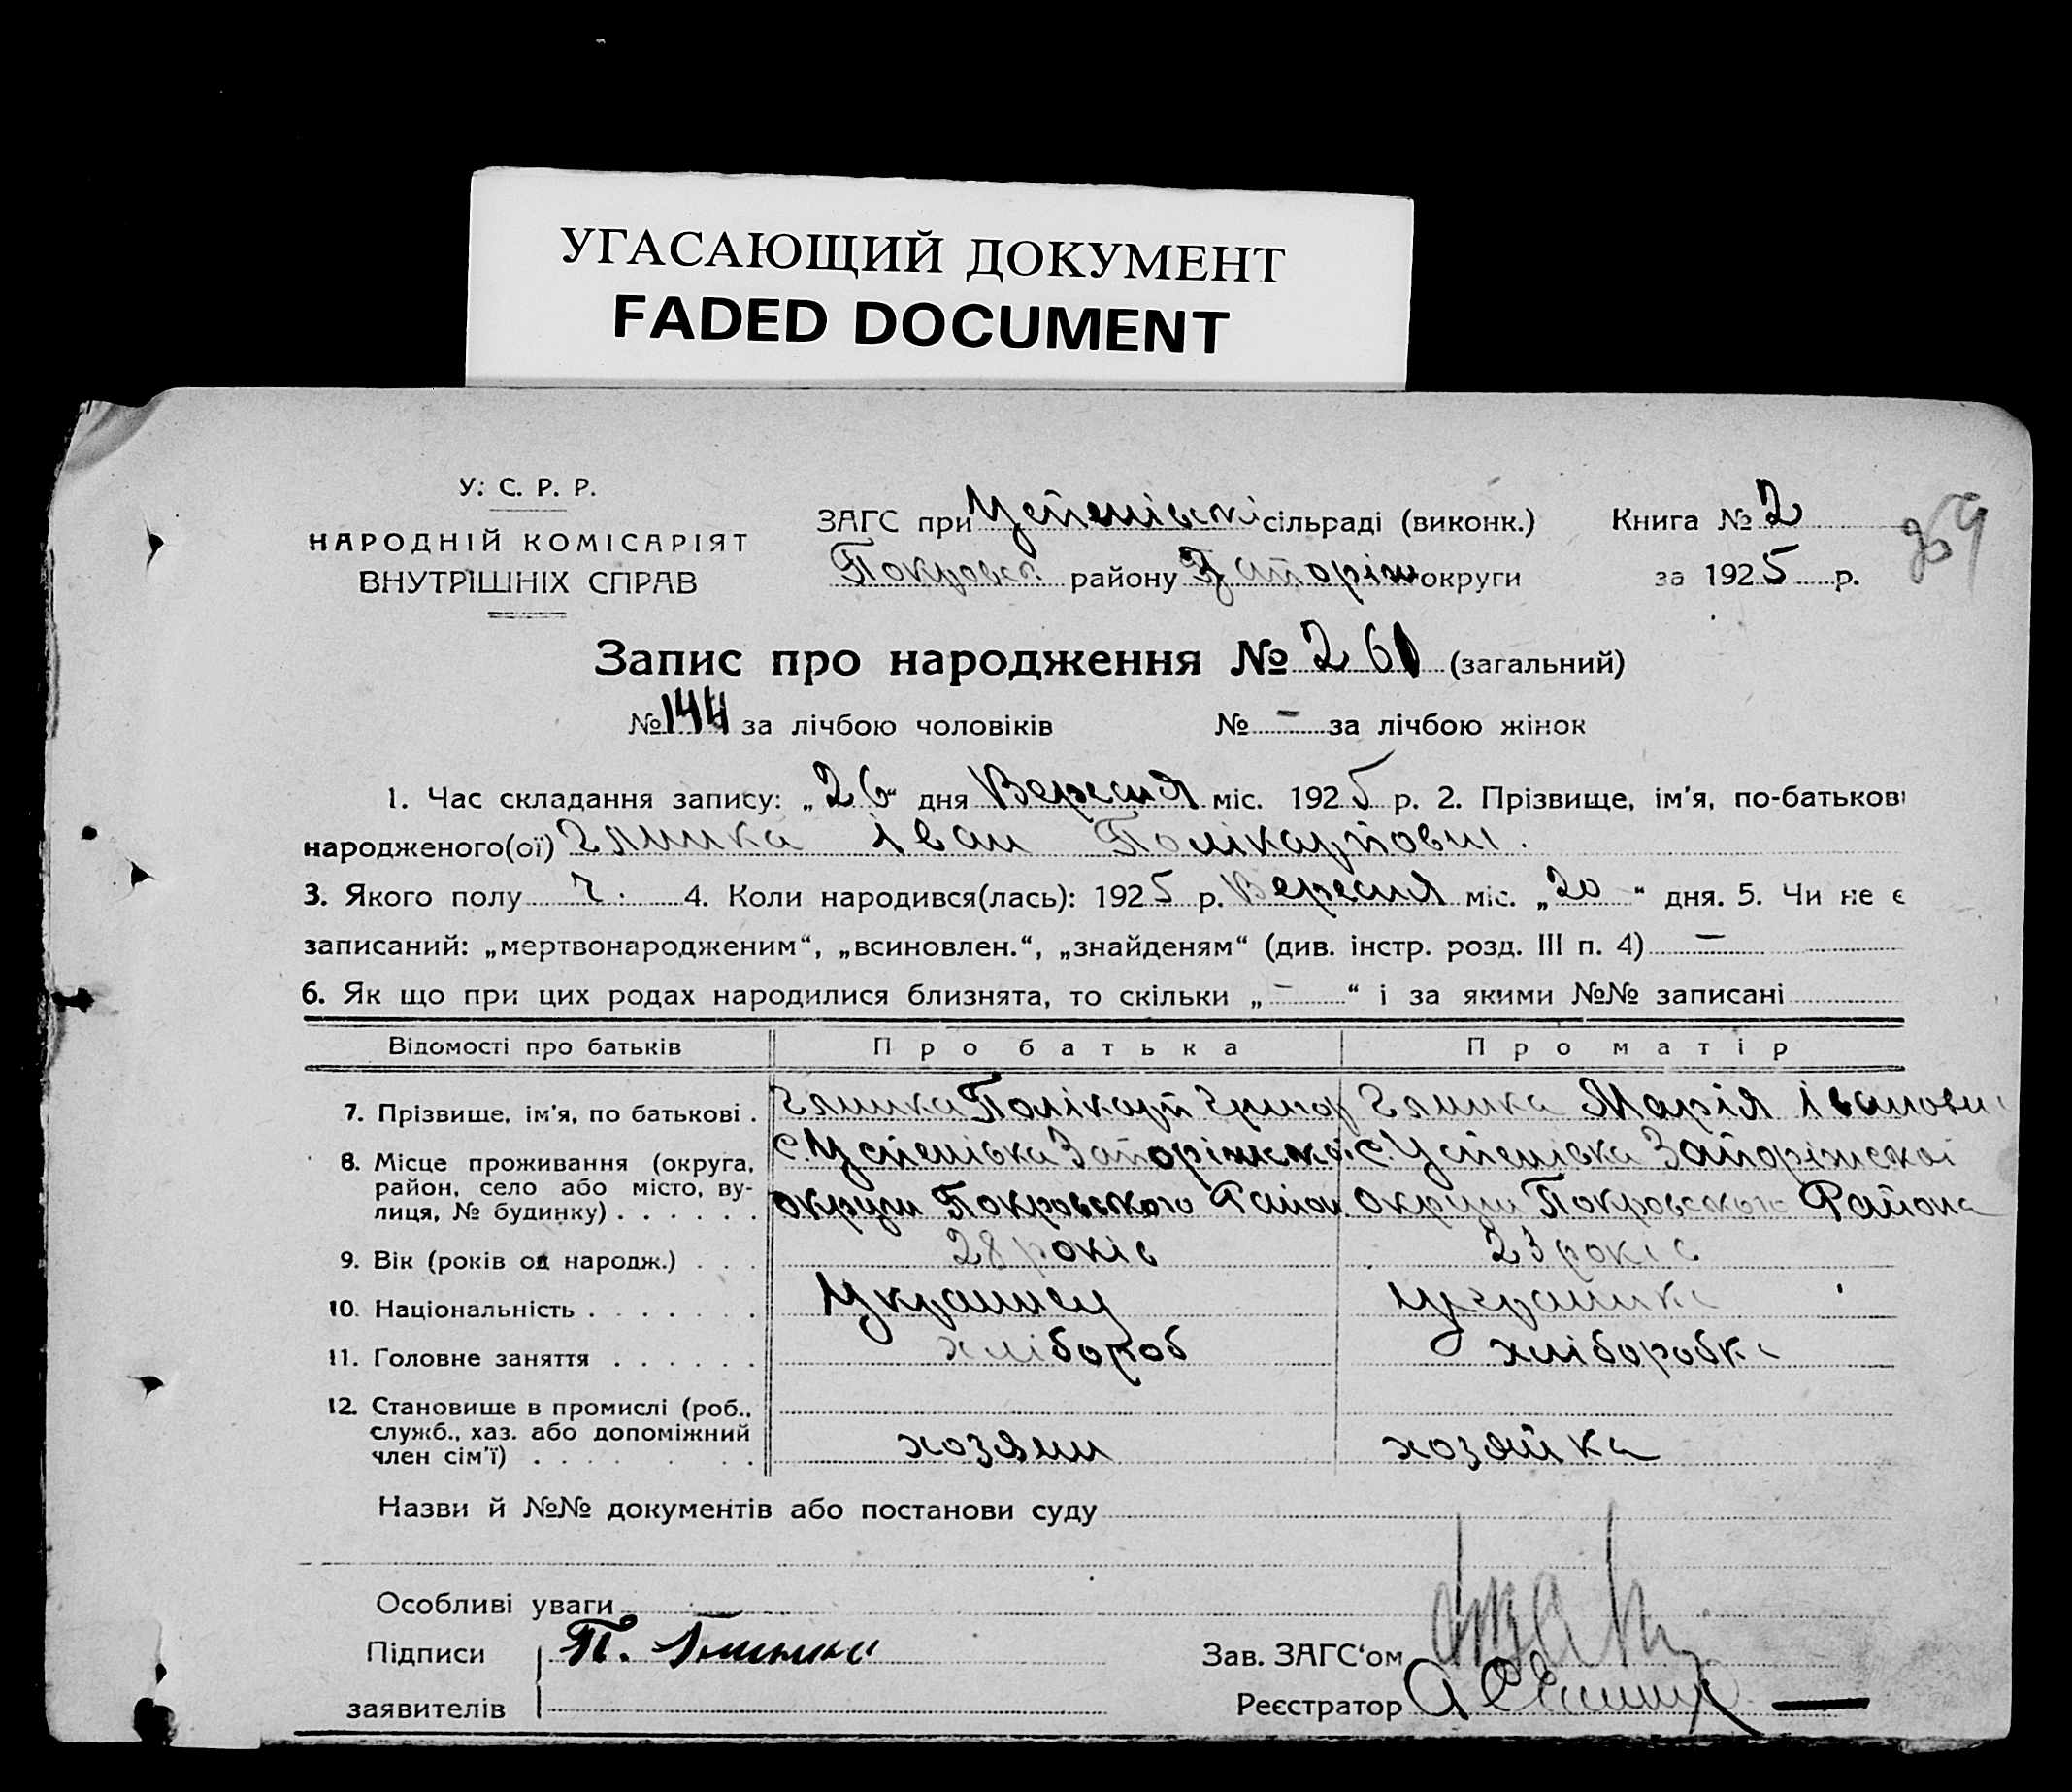 УГАСАЮЩИЙ ДОКУМЕНТ
FADED DOCUMENT
У. С. Р. Р.
НАРОДНІЙ КОМІСАРІЯТ
ВНУТРІШНІХ СПРАВ
ЗАГС при Успенівські сільраді (виконк.)
Покровск. району Запоріж округи
Книга № 2
за 1925 р.
Запис про народження № 261 (загальний)
№ 144 за лічбою чоловіків № – за лічбою жінок
1. Час складання запису: „26“ дня Вересня міс. 1925 р. 2. Прізвище, ім'я, по-батькові
народженого(ої) Іван Полікарпович.
3. Якого полу ч. 4. Коли народився(лась): 1925 р. Вересня міс. „20“ дня. 5. Чи не є
записаний: „мертвонародженим“, „всиновлен.“, „знайденям“ (див. інстр. розд. III п. 4) –
6. Як що при цих родах народилися близнята, то скільки „–“ і за якими №№ записані
Відомості про батьків Про батька Про матір
7. Прізвище, ім'я, по батькові . Полікарп Григор Марія Іванови
8. Місце проживання (округа, с. Успенівка Запоріжскої с. Успенівка Запоріжскої
район, село або місто, ву-
лиця, № будинку) . . . . . . округи Покровского Район округи Покровского Района
9. Вік (років од народж.) . . . 28 років 23 років
10. Національність . . . . . . . Украинец Украинка
11. Головне заняття . . . . . . хлібороб хліборобка
12. Становище в промислі (роб.,
служб., хаз. або допоміжний
член сім'ї) . . . . . . . хозяин хозяйка
Назви й №№ документів або постанови суду
Особливі уваги
Підписи П.
заявителів
Зав. ЗАГС'ом
Реєстратор